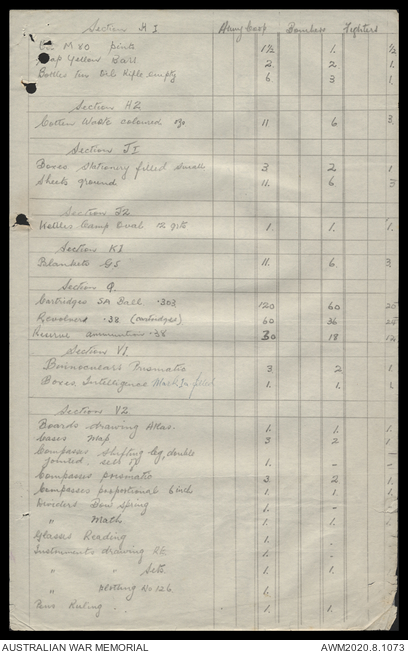 Section H I Army Coop Bombers Fighters
M 80 pints 1½ 1. ½
Soap Yellow Bars 2 2 1.
Bottles Rifle empty 6 3 1.
Section H2
Cotton Waste coloured 11. 6 3.
Section J I
Boxes Stationery filled small 3 2 1
Sheets ground 11. 6 3
Section J2
Kettles Camp Oval 12 qts 1. 1. 1.
Section K I
Blankets GS 11. 6. 3
Section Q.
Cartridges SA Ball .303 120 60
Revolvers .38 (cartridges) 60 36 24
Reserve ammunition .38 30 18 12
Section V1.
Binoculars Prismatic 3. 2 1.
Boxes Intelligence filled 1. 1. 1.
Section V2.
Boards drawing Atlas. 1. 1. 1.
Cases Map 3 2 1.
Compasses shifting leg, double
jointed sets of 1. - -
Compasses prismatic 3 2 1.
Compasses proportional 6 inch 1. 1. 1.
Dividers Bow Spring 1. - -
" Math 1. 1. 1.
Glasses Reading 1. -
Instruments drawing RE. 1. -
" " Sets. 1. 1.
" plotting No 126
Pens Ruling. 1. 1. 1.
AUSTRALIAN WAR MEMORIAL AWM2020.8.1073